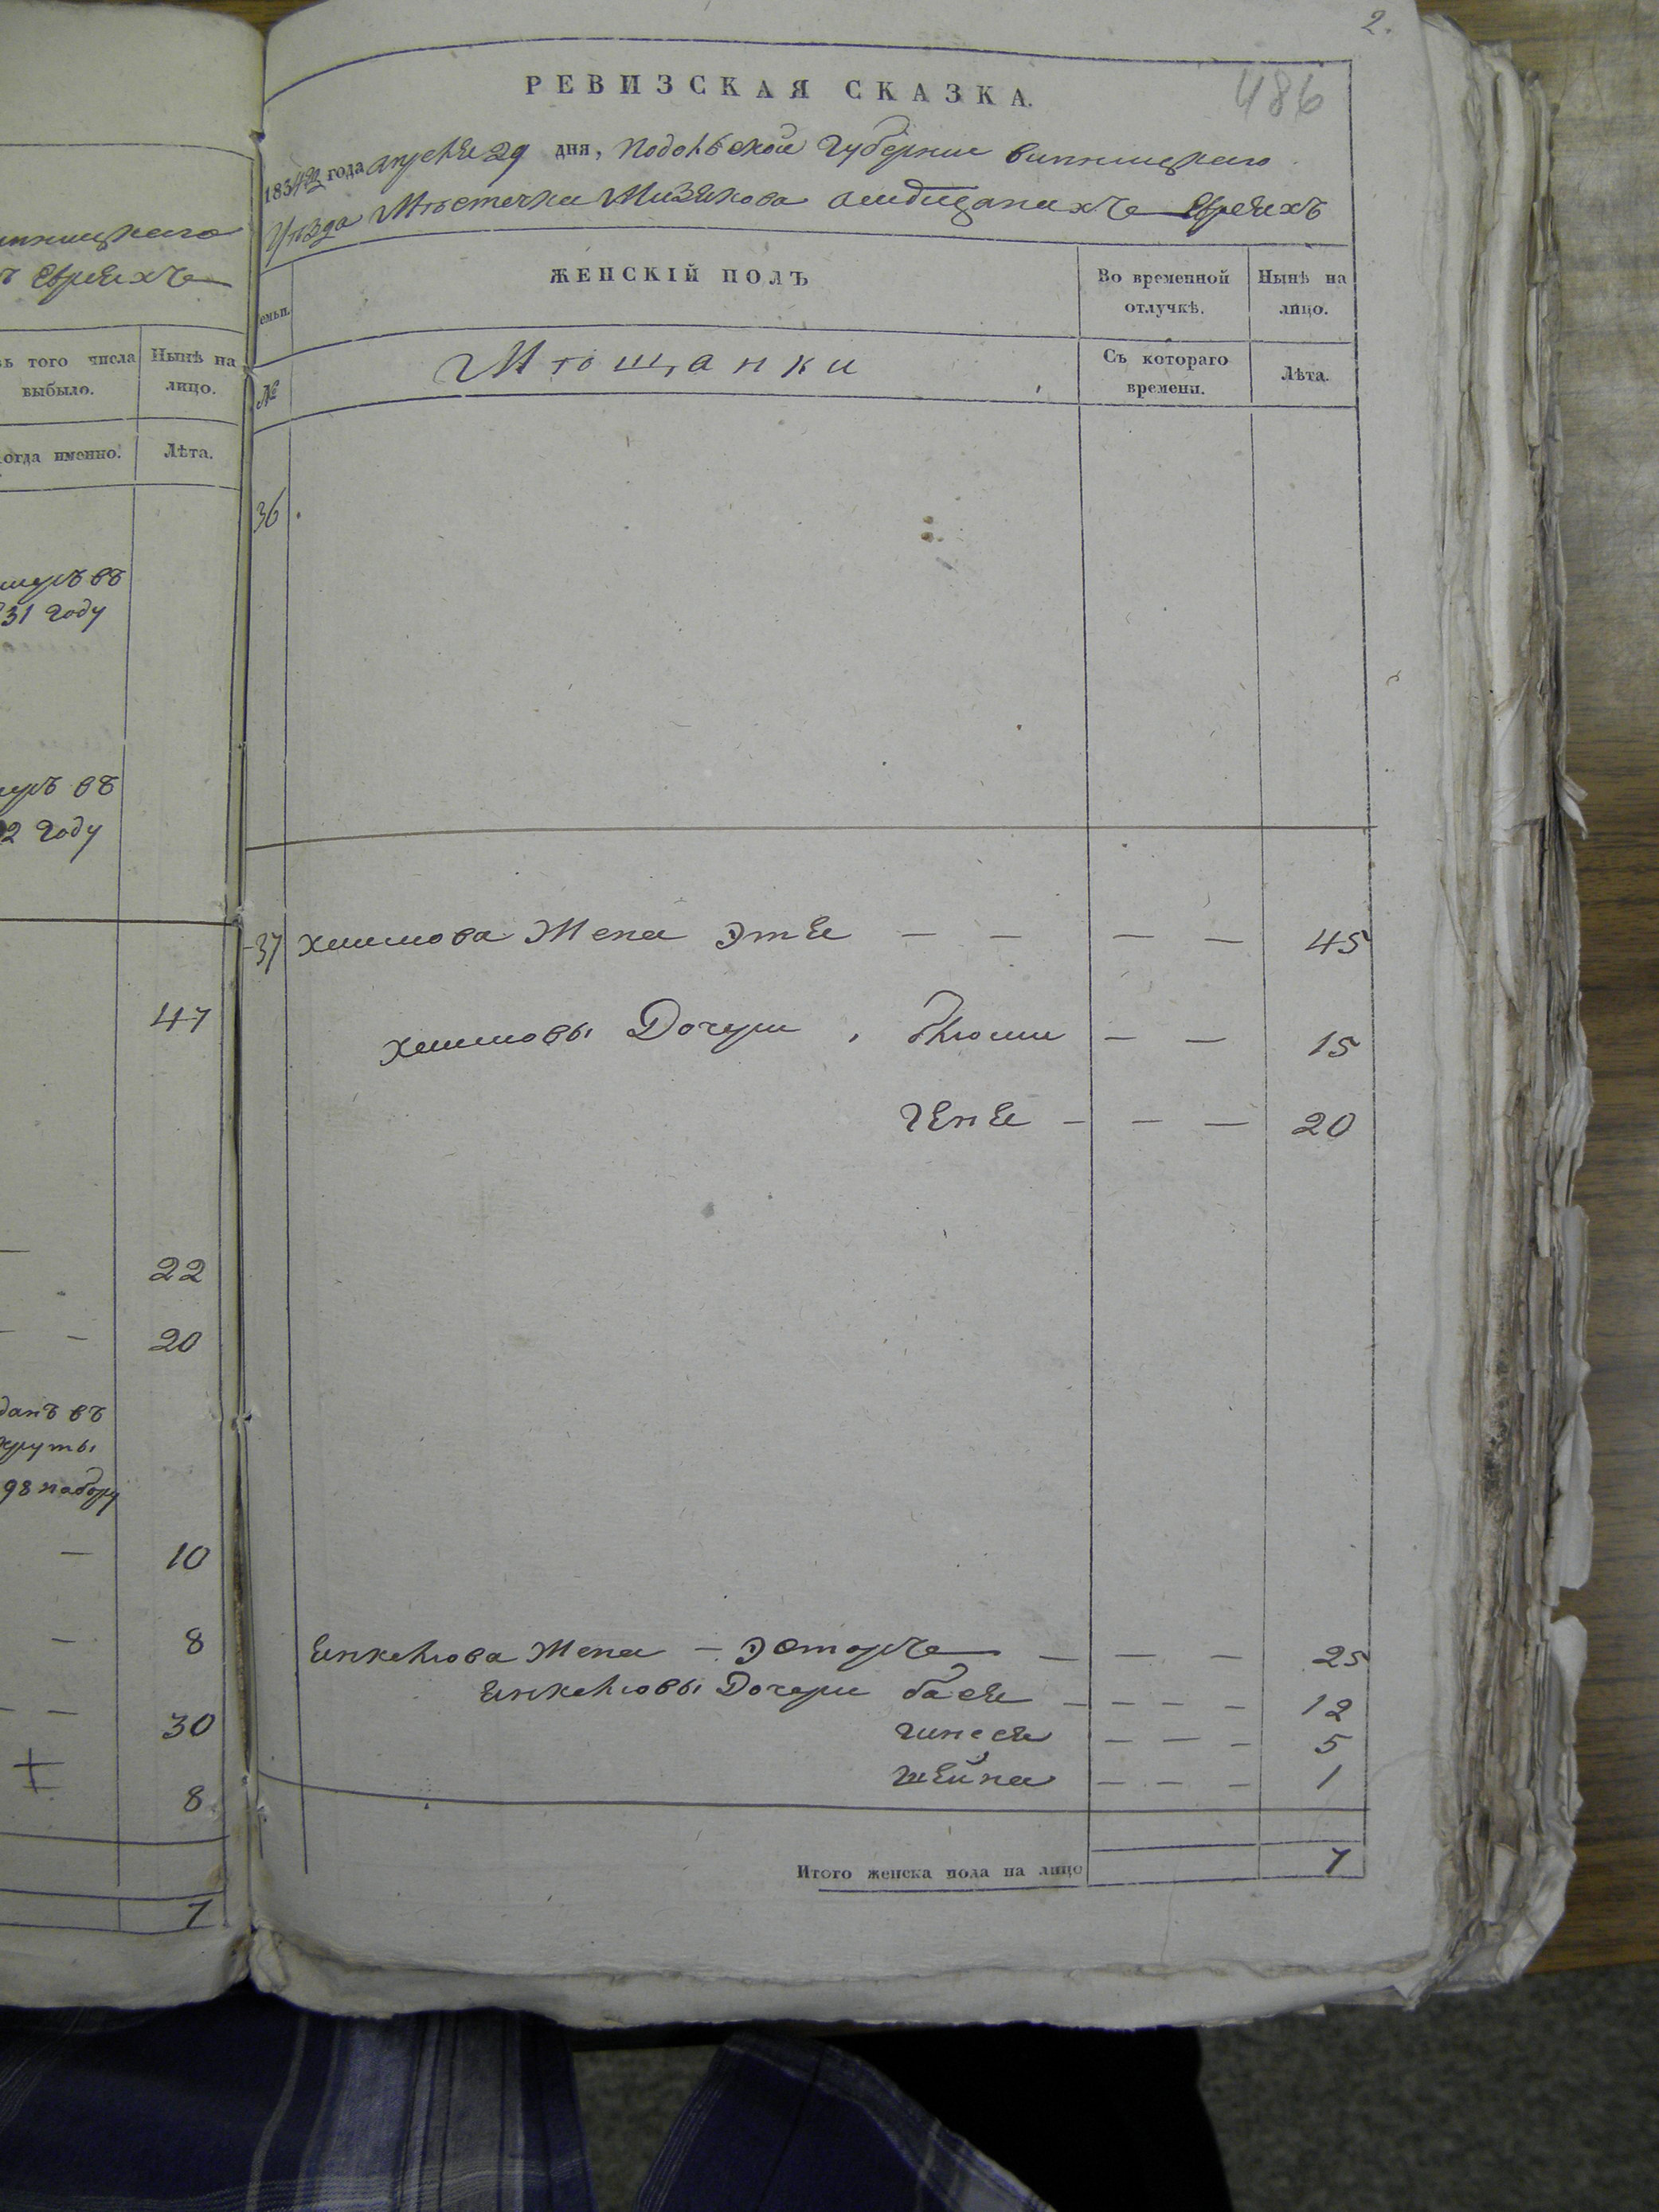 ницкаго
ъ евреяхъ
ъ того числа
выбыло.
Нынѣ на
лицо.
когда именно.
Лѣта.
умеръ въ
31 году
умеръ въ
2 году
47
22
20
данъ въ
круты
98 набору
10
8
30
8
7
2.
486
РЕВИЗСКАЯ СКАЗКА.
1834го года апреля 29 дня, Подольской Губернии Винницкаго
Уѣзда Мѣстечка Мизякова о мещанахъ евреяхъ
емьи.
ЖЕНСКІЙ ПОЛЪ
Во временной
отлучкѣ.
Нынѣ на
лицо.
№
Мѣщанки
Съ котораго
времени.
Лѣта.
36
37 Хаимова Жена Этя — — — — 45
Хаимовы Дочери, Блюма — — 15
Геня — — — 20
Янкелюва Жена — Эстеръ — — — 25
Янкелювы Дочери Бася — — — — 12
Гинся — — — 5
Шейна — — — 1
Итого женска пола на лицо 7